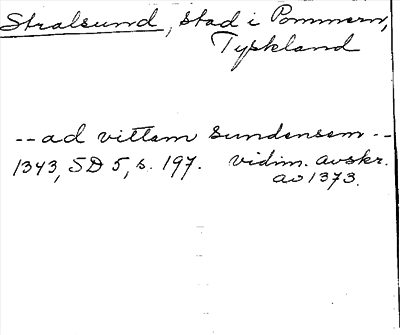 Stralsund, stad i Pommern,
Tyskland
-- ad vittam sundensem --
1343, SD 5, s. 197. vidim. avskr.
av 1373.